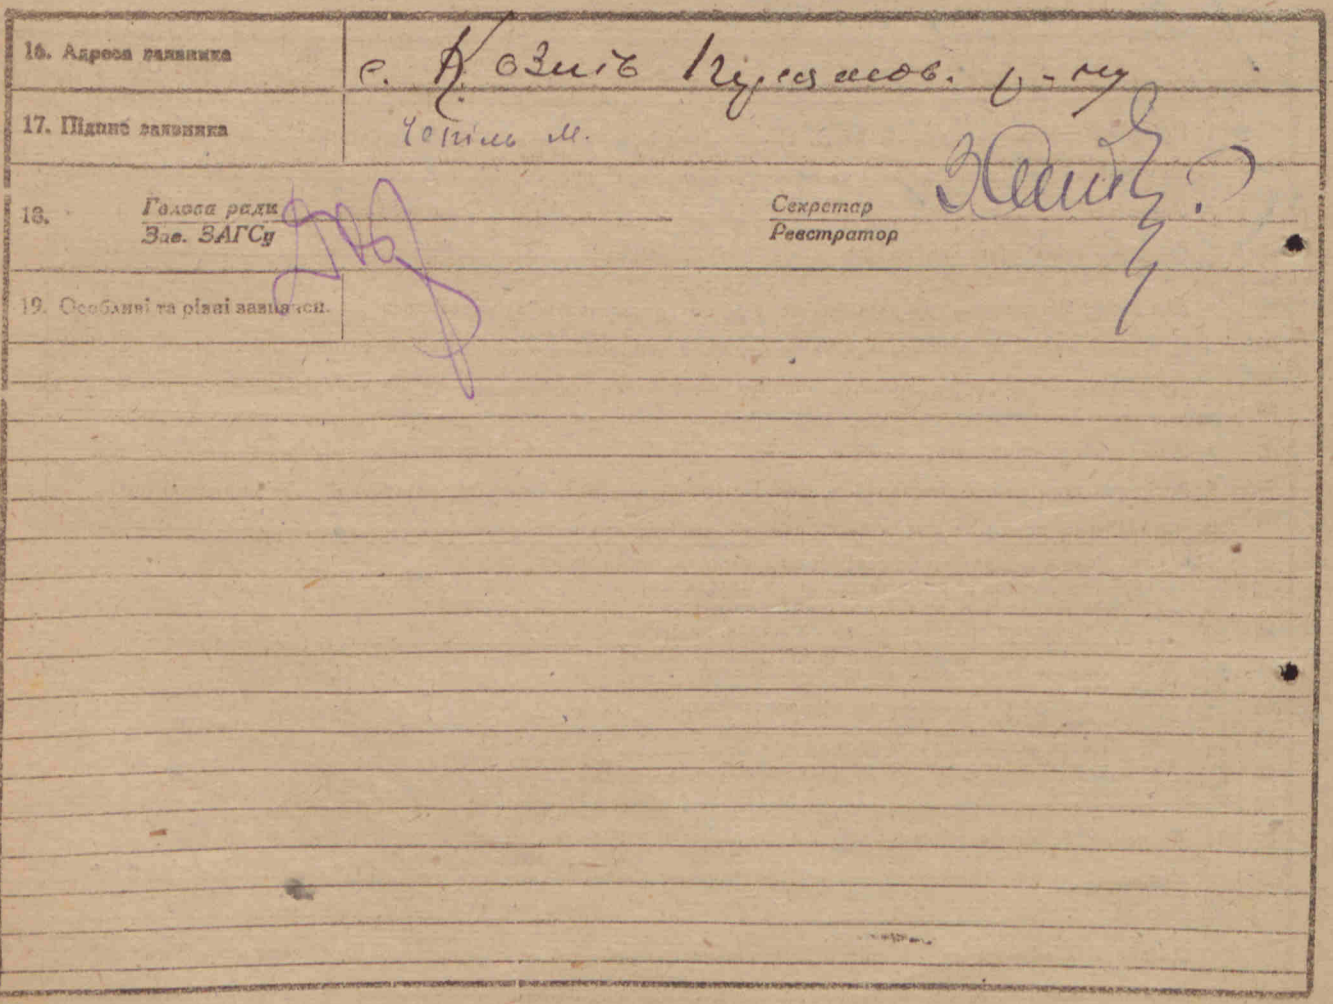 16. Адреса заявника
с. Козлів Козлов. р-ну
17. Підпис заявника
Чепіль М.
18. Голова ради
Зав. ЗАГСу
Секретар
Реєстратор
19. Особливі та різні зазначен.